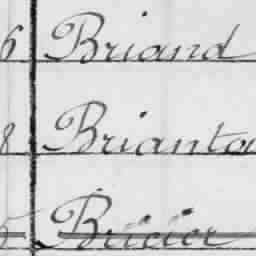 6 Briand
8 Brianta
5 Bricier